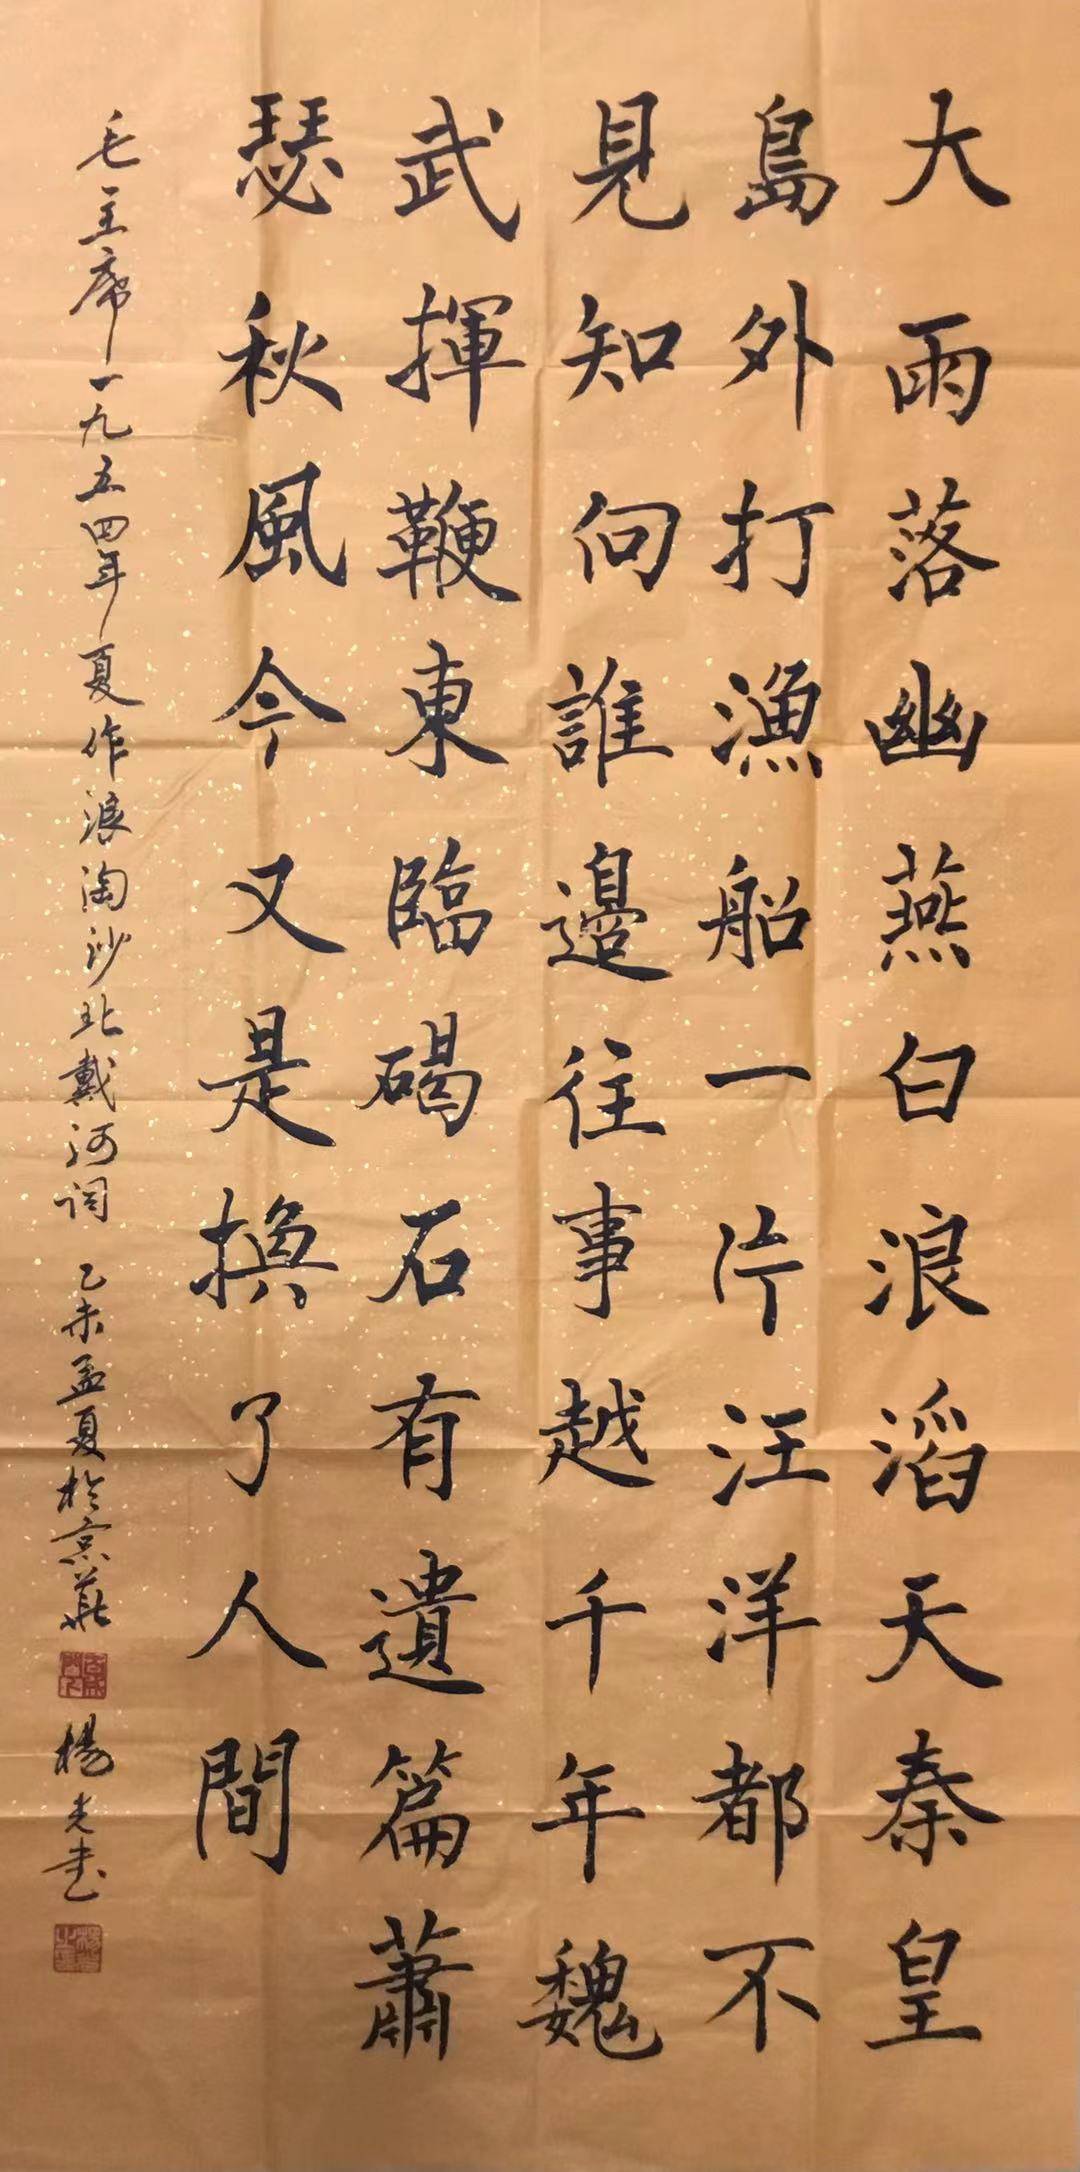 大雨落幽燕白浪滔天秦皇
島外打漁船一片汪洋都不
見知向誰邊往事越千年魏
武揮鞭東臨碣石有遺篇蕭
瑟秋風今又是換了人間
毛主席一九五四年夏作浪淘沙北戴河詞 乙未孟夏於京燕 楊光書